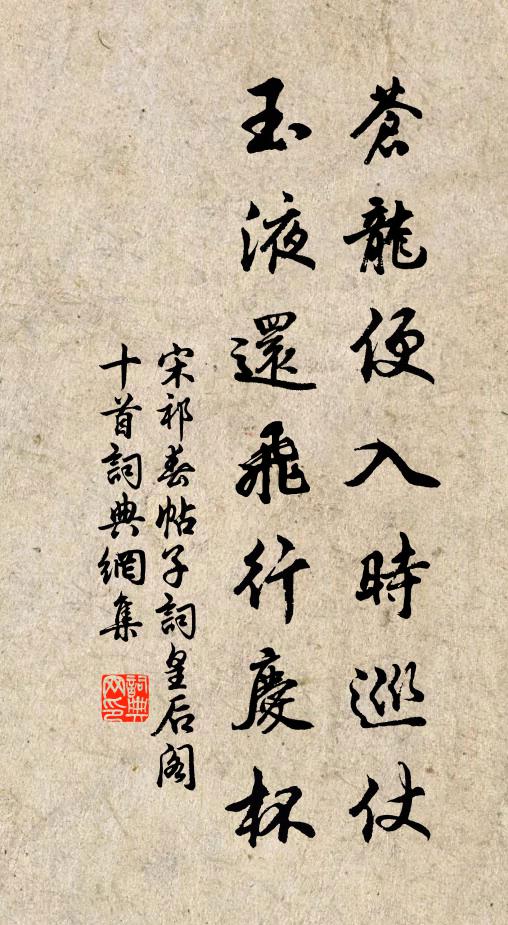 蒼龍便入時巡仗
玉液還飛行慶杯
宋祁春帖子詞皇后阁
十首詞典網集
詞典网印